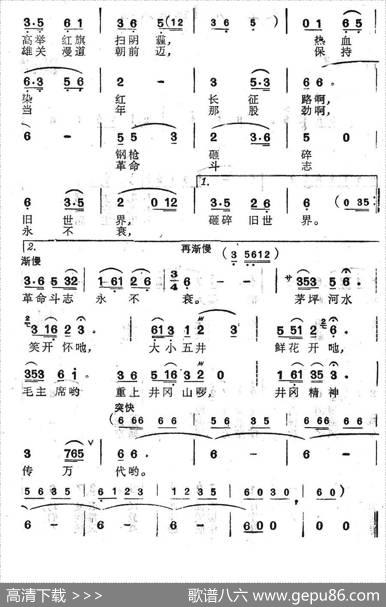 3·5 6 1 3 6 5 (12 3 6 5) 0 1 6 5
高举 红旗 扫阴霾， 热血
雄关 漫道 朝前迈， 保持
6·3 5 6 2 - 3 5·3 6 6·
染 红 长征 路啊，
当 年 那股 劲啊，
6 - 5 5 3 2 3·6 5 0
钢枪 砸 碎
革命 斗 志
1.
6 3·5 2 0 12 3·5 2 6 6 (0 35)
旧世 界， 砸碎 旧世 界。
永不 衰，
2.
渐慢 再渐慢 (3 5612)
3·6 5 32 1 61 2 6 3/4 6 - - 353 5 6
革命斗志 永不 衰。 茅坪 河水
3 16 2 3· 61 3 1 2 3 5 51 2 6·
笑开 怀吔， 大小五井 鲜花 开吔，
353 6 1· 3 16 3 2 0 1 61 35 3
毛主席哟 重上 井冈 山啰， 井冈 精神
突快
(6 66 6 6 6 66 6 6 5635 5635
3 765 6 6· 6 - 6 -
传万 代哟。
5635 6123 1235 6030 , 60)
6 - 6 - 6 - 600 0 0
高清下载 >>>
歌谱八六 www.gepu86.com